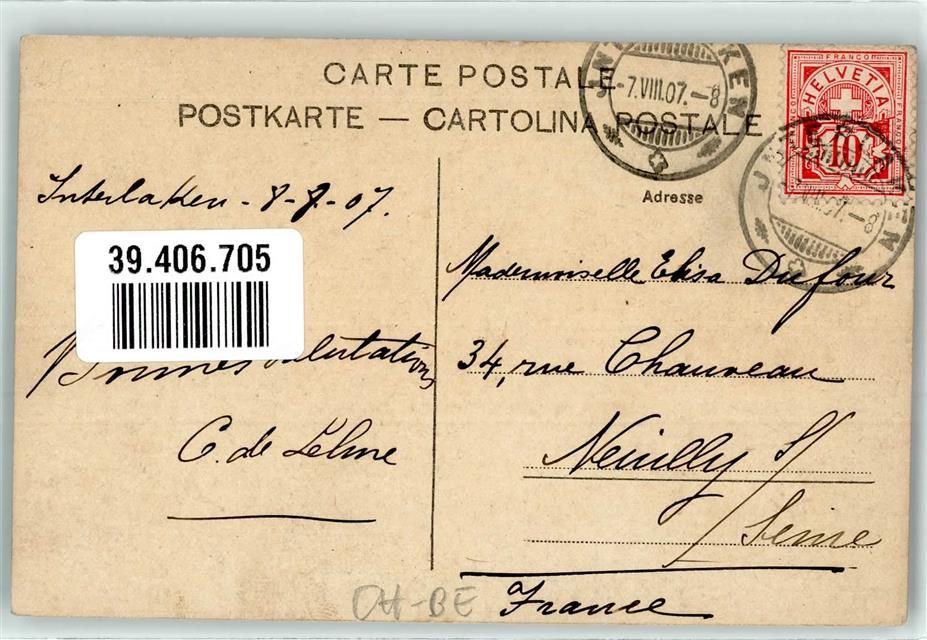 CARTE POSTALE
POSTKARTE — CARTOLINA POSTALE
INTERLAKEN
-7.VIII.07.-8
FRANCO
HELVETIA
10
INTERLAKEN
VIII.07.-8
Adresse
Interlaken - 8-8-07.
39.406.705
Bonnes salutations
C. de
Mademoiselle Elisa Dufour
34, rue Chauveau
Neuilly S/
Seine
France
CH-BE